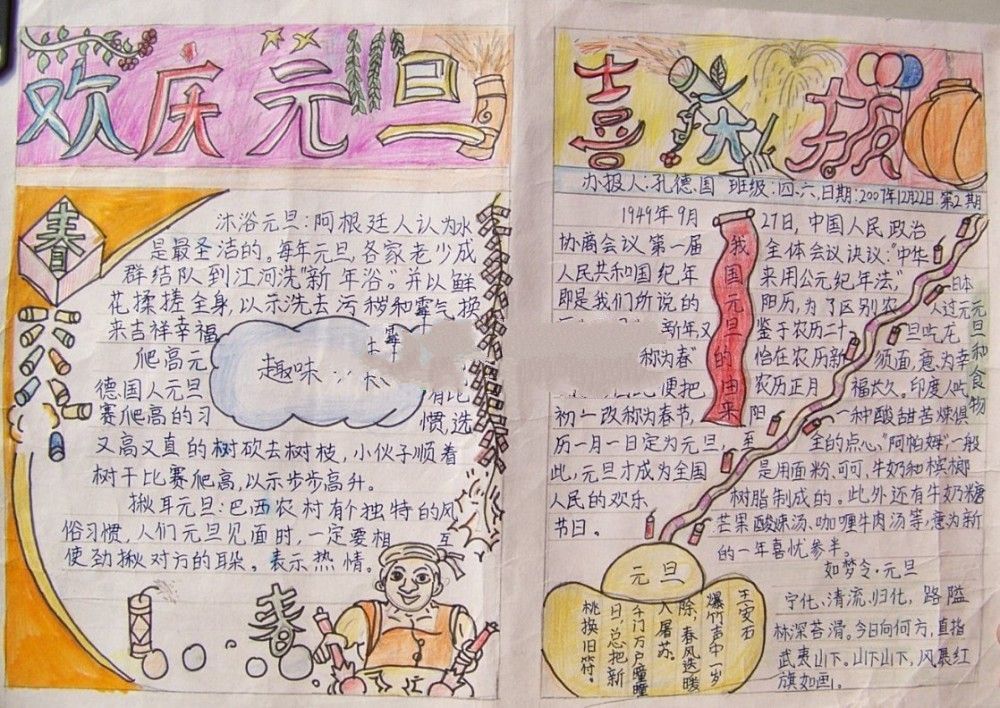 欢庆元旦
春
沐浴元旦:阿根廷人认为水
是最圣洁的。每年元旦,各家老少成
群结队到江河洗"新年浴"。并以鲜
花揉搓全身,以示洗去污秽和霉气,换
来吉祥幸福
爬高元
德国人元旦
赛爬高的习
惯,选
又高又直的树砍去树枝,小伙子顺着
树干比赛爬高,以示步步高升。
揪耳元旦:巴西农村有个独特的风
俗习惯,人们元旦见面时,一定要相互
使劲揪对方的耳朵。表示热情。
趣味
春
喜
办报人:孔德国 班级:四.六 日期:2007年12月22日 第2期
我国元旦的由来
1949年9月27日,中国人民政治
协商会议第一届全体会议决议:"中华
人民共和国纪年采用公元纪年法",
即是我们所说的阳历,为了区别农
新年又鉴于农历二十
称为春恰在农历新
便把农历正月
初一改称为春节,阳
历一月一日定为元旦,至
此,元旦才成为全国
人民的欢乐
节日。
元旦和食物
日本
人过元
旦吃龙
须面,意为幸
福太久。印度人吃
一种酸甜苦辣俱
全的点心,"阿帕姆"一般
是用面粉、可可、牛奶和槟榔
树脂制成的。此外还有牛奶糖
芒果酸辣汤、咖喱牛肉汤等,意为新
的一年喜忧参半。
如梦令·元旦
宁化、清流、归化,路隘
林深苔滑。今日向何方,直指
武夷山下。山下山下,风展红
旗如画。
元旦
王安石
爆竹声中一岁
除,春风送暖
入屠苏。
千门万户曈曈
日,总把新
桃换旧符。